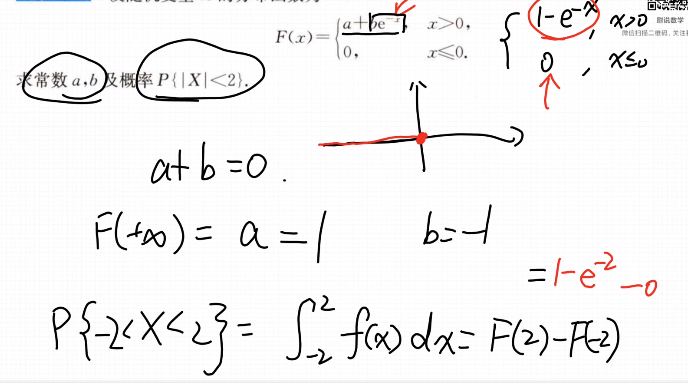 F(x)= { a+be⁻ˣ, x>0,
0, x≤0.
{ 1-e⁻ˣ, x>0
0, x≤0
跟说数学
微信扫描二维码,关注
求常数 a,b 及概率 P{|X|<2}.
a+b=0.
F(+∞)= a=1 b=-1
=1-e⁻² -0
P{-2<X<2}= ∫₋₂² f(x)dx= F(2)-F(-2)